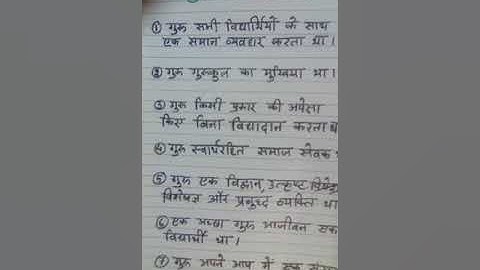 ① गुरू सभी विद्यार्थियों के साथ
एक समान व्यवहार करता था।
② गुरू गुरूकुल का मुखिया था।
③ गुरू किसी प्रकार की अपेक्षा
किए बिना विद्यादान करता था
④ गुरू स्वार्थरहित समाज सेवक
⑤ गुरू एक विद्वान, उत्कृष्ट
विशेषज्ञ और प्रबुद्ध व्यक्ति था
⑥ एक अच्छा गुरू आजीवन एक
विद्यार्थी था।
⑦ गुरू अपने आप में एक